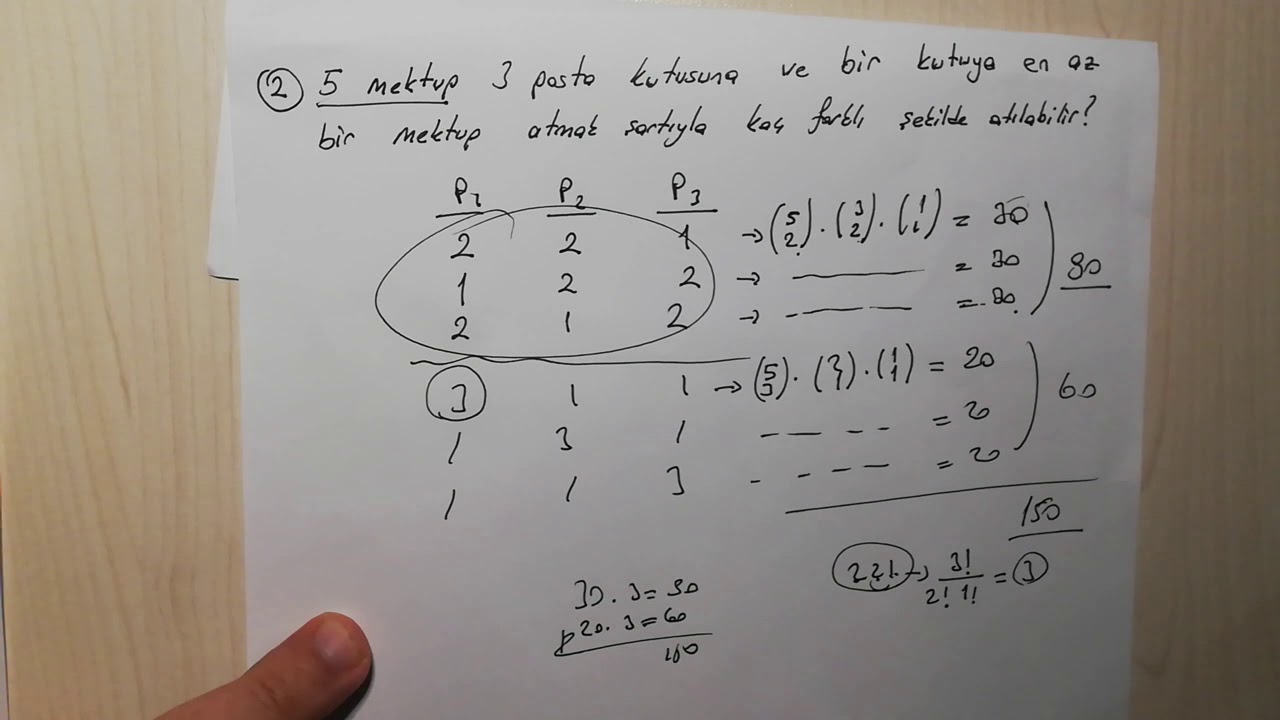 ② 5 mektup 3 posta kutusuna ve bir kutuya en az
bir mektup atmak şartıyla kaç farklı şekilde atılabilir?
P1 P2 P3
2 2 1 → (5 2) . (3 2) . (1 1) = 30
1 2 2 → ——— = 30
2 1 2 → - ——— = 30
90
3 1 1 → (5 3) . (2 1) . (1 1) = 20
1 3 1 - — - - = 20
1 1 3 - - - - = 20
60
150
221 → 3! / 2! 1! = 3
30 . 3 = 90
20 . 3 = 60
150